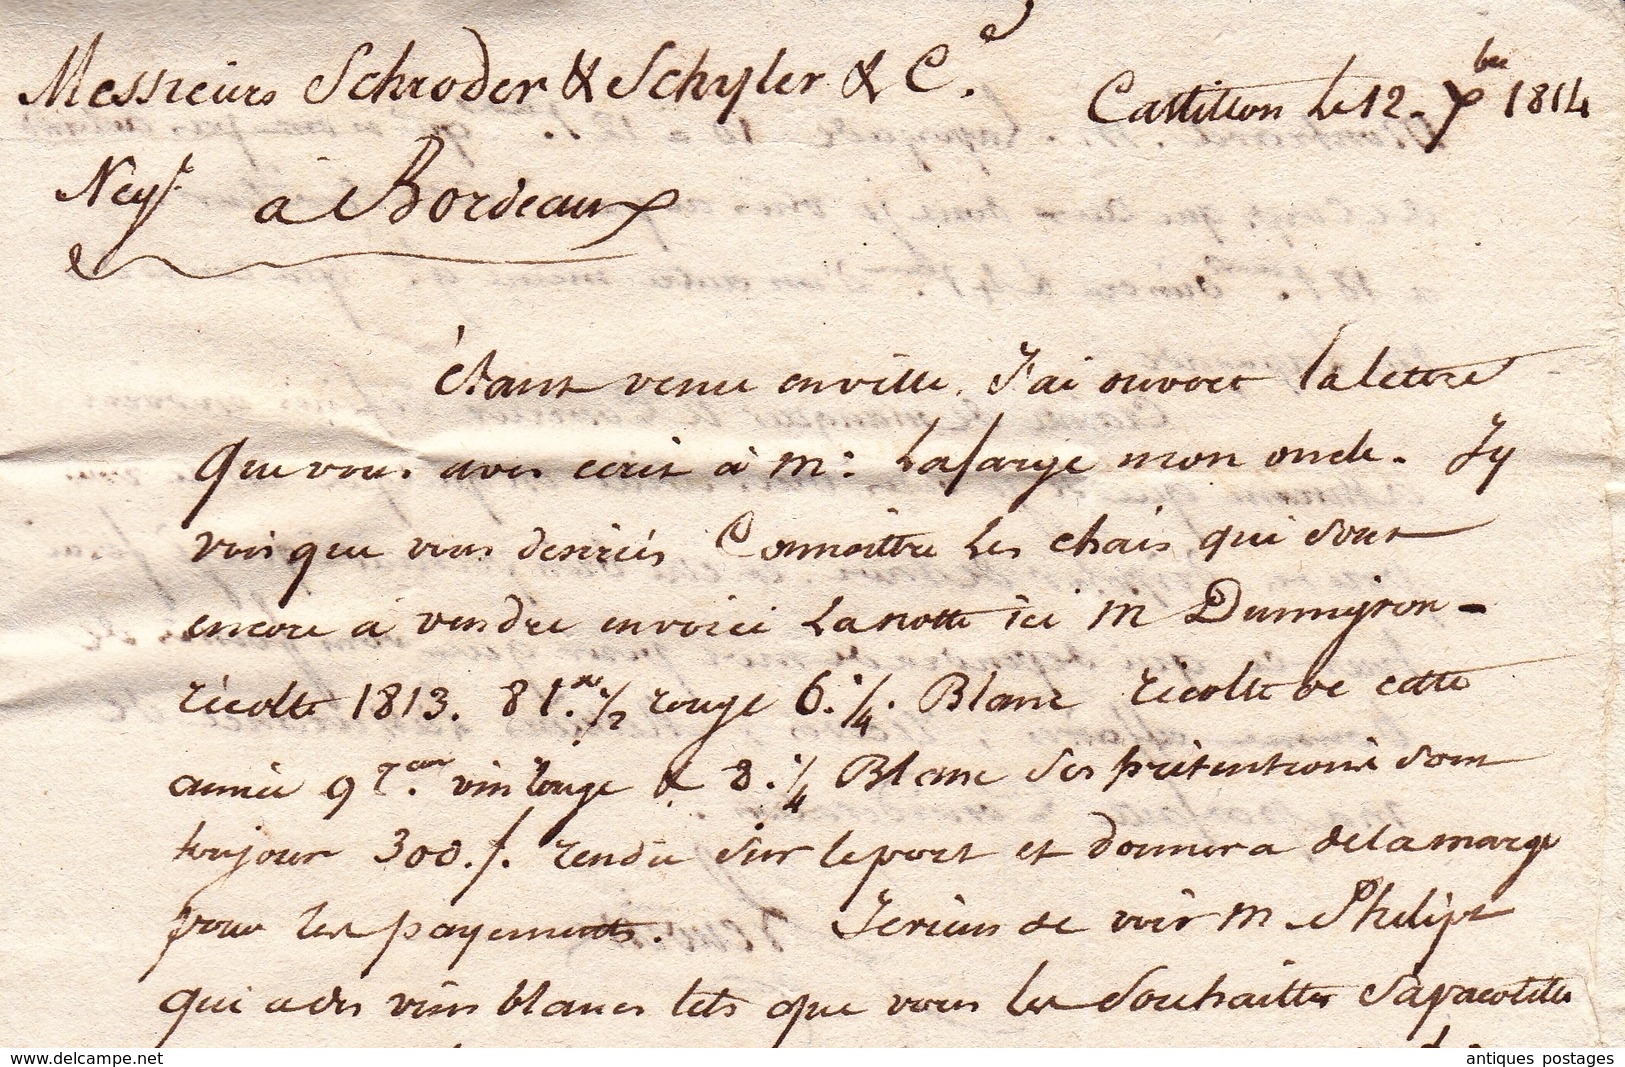 Messieurs Schroder & Schyler & C.e
Castillon le 12. Xbre 1814
Negt. à Bordeaux
étant venu en ville, J'ai ouvert la lettre
que vous aves ecrit à Mr: Lafarge mon oncle. J'y
vois que vous desiriés Connoittre les chais qui sont
encore a vendre en voici la notte ici M Dumeyron -
récolte 1813. 81.aux 1/2 rouge 6. 1/4. Blanc récolte de cette
année 9 T.aux vin rouge & 3. 1/4 Blanc ses prétentions sont
toujour 300. f. rendu sur le port et donnera de la marge
pour les payements. Je viens de voir M Phelipt
qui a des vins blancs tels que vous les souhaittes
www.delcampe.net
antiques postages